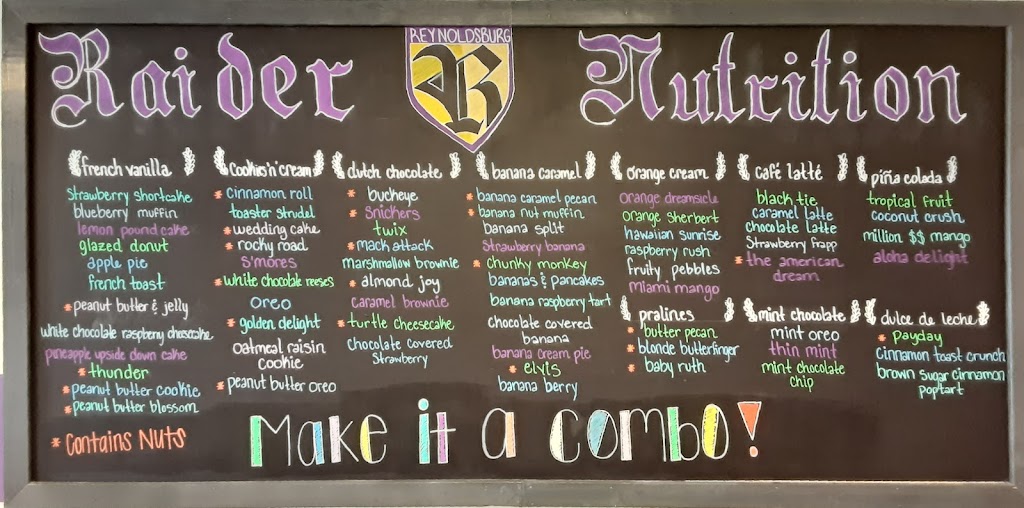 Raider
REYNOLDSBURG
R
Nutrition
french vanilla
strawberry shortcake
blueberry muffin
lemon pound cake
glazed donut
apple pie
french toast
* peanut butter & jelly
white chocolate raspberry cheesecake
pineapple upside down cake
* thunder
* peanut butter cookie
* peanut butter blossom
* Contains Nuts
Cookies'n'cream
* cinnamon roll
toaster strudel
* wedding cake
* rocky road
s'mores
* white chocolate reeses
oreo
* golden delight
oatmeal raisin
cookie
* peanut butter oreo
dutch chocolate
* buckeye
* snickers
twix
* mack attack
marshmallow brownie
* almond joy
caramel brownie
* turtle cheesecake
chocolate covered
strawberry
banana caramel
* banana caramel pecan
* banana nut muffin
banana split
strawberry banana
* chunky monkey
bananas & pancakes
banana raspberry tart
chocolate covered
banana
banana cream pie
* elvis
banana berry
orange cream
orange dreamsicle
orange sherbert
hawaiian sunrise
raspberry rush
fruity pebbles
miami mango
pralines
* butter pecan
* blonde butterfinger
* baby ruth
café latté
black tie
caramel latte
chocolate latte
strawberry frapp
* the american
dream
mint chocolate
mint oreo
thin mint
mint chocolate
chip
piña colada
tropical fruit
coconut crush
million $$ mango
aloha delight
dulce de leche
* payday
cinnamon toast crunch
brown sugar cinnamon
poptart
Make it a combo!